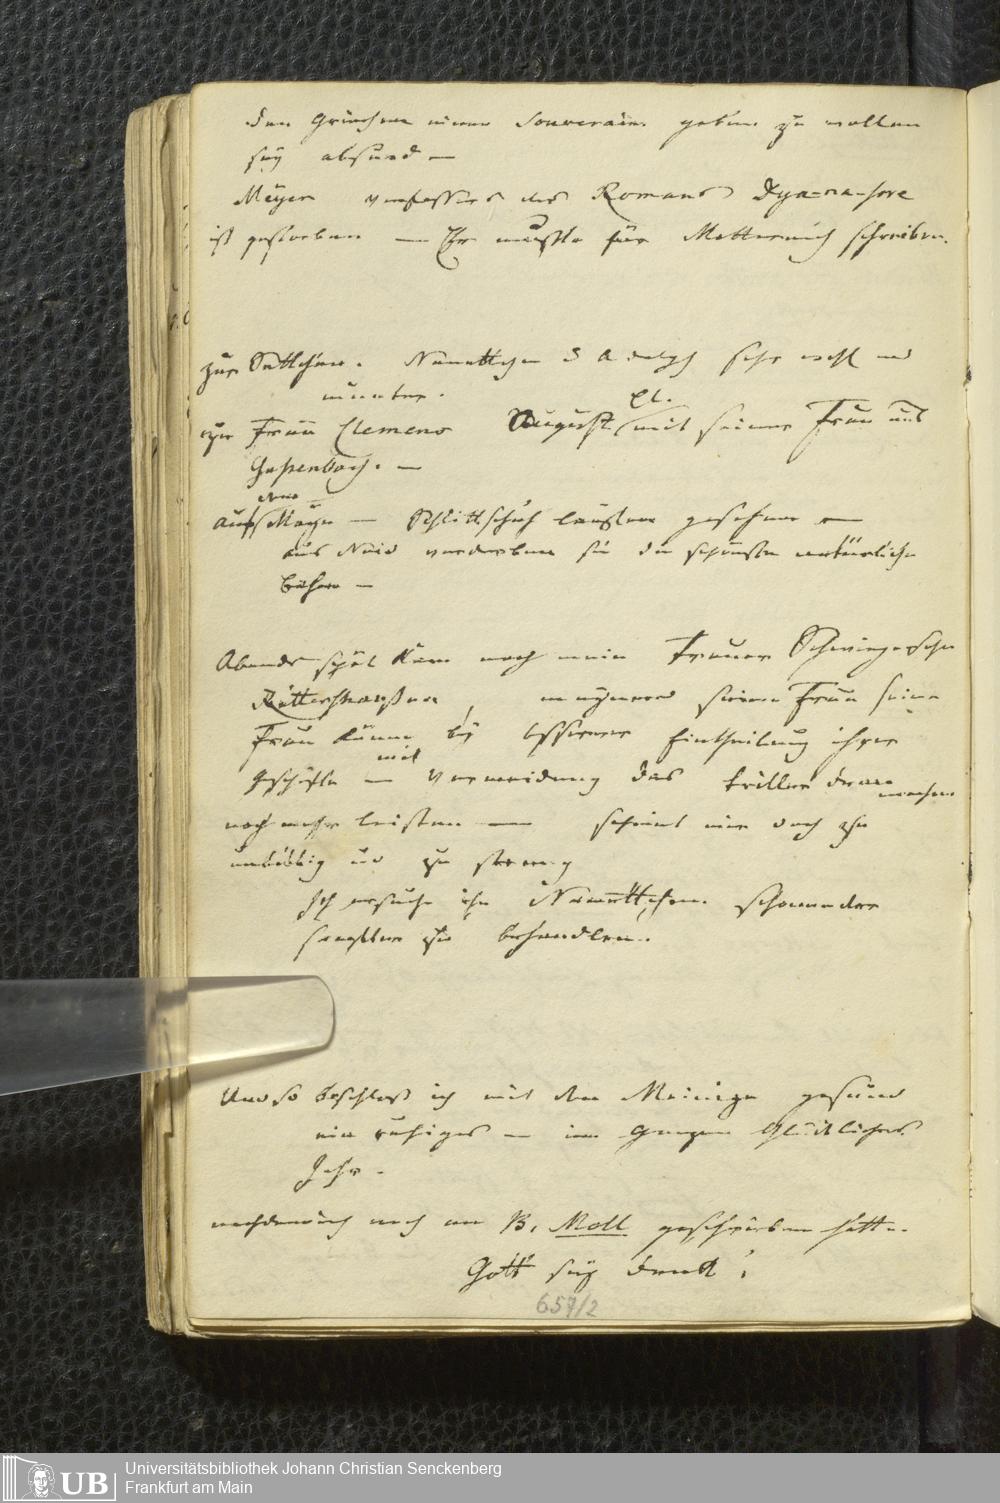 den Griechen einen Souverain geben zu wollen
sey absurd —
Meyer Verfasser des Romans Dya-na-sore
ist gestorben — Er mußte für Metternich schreiben.
zur Nannettchen & Adolph sehr wohl und
munter.
zur Frau Clemens August (mit seiner Frau und
Gaßenbach. —
dem
auf Mayn — Schlittschuh laufen gesehen —
aus Neid verderben sie die schönste natürliche
Bahn —
Abends spät kam noch mein
Rittershausen, seine Frau seine
Frau könne bey besserer Eintheilung ihrer
mit
Geschäfte — Vermeidung des
noch mehr leisten — scheint mir doch zu
unbillig und zu streng
Ich ersuche ihn Nannettchen schonender
sanfter zu behandlen.
Und so beschloß ich mit den Meinigen gesund
ein ruhiges — im Ganzen Glückliches
Jahr.
nachdem ich noch an B. Moll geschrieben hatte.
Gott sey Dank!
657/2
Universitätsbibliothek Johann Christian Senckenberg
Frankfurt am Main
UB